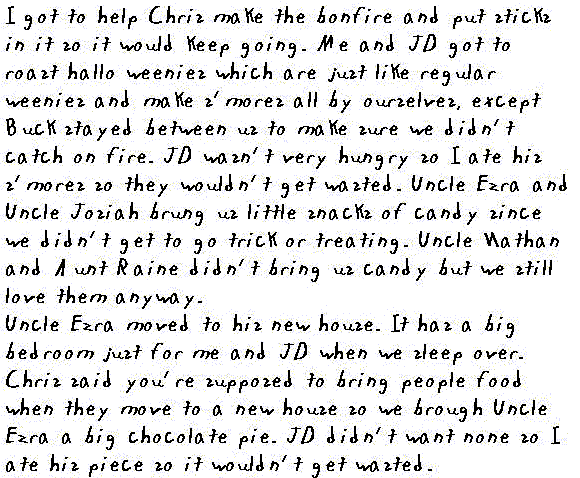 I got to help Chris make the bonfire and put sticks
in it so it would keep going. Me and JD got to
roast hallo weenies which are just like regular
weenies and make s'mores all by ourselves, except
Buck stayed between us to make sure we didn't
catch on fire. JD wasn't very hungry so I ate his
s'mores so they wouldn't get wasted. Uncle Ezra and
Uncle Josiah brung us little snacks of candy since
we didn't get to go trick or treating. Uncle Nathan
and Aunt Raine didn't bring us candy but we still
love them anyway.
Uncle Ezra moved to his new house. It has a big
bedroom just for me and JD when we sleep over.
Chris said you're supposed to bring people food
when they move to a new house so we brough Uncle
Ezra a big chocolate pie. JD didn't want none so I
ate his piece so it wouldn't get wasted.